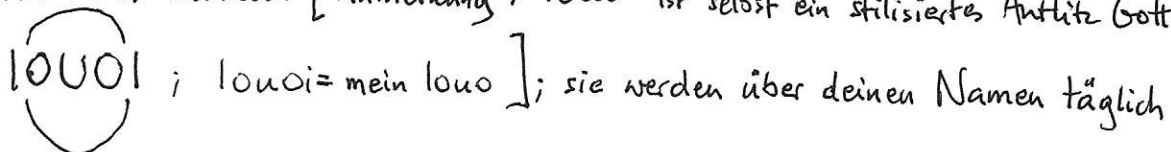 ist selbst ein stilisiertes Antlitz Gott
IOUOI ; Iouoi = mein Iouo ]; sie werden über deinen Namen täglich